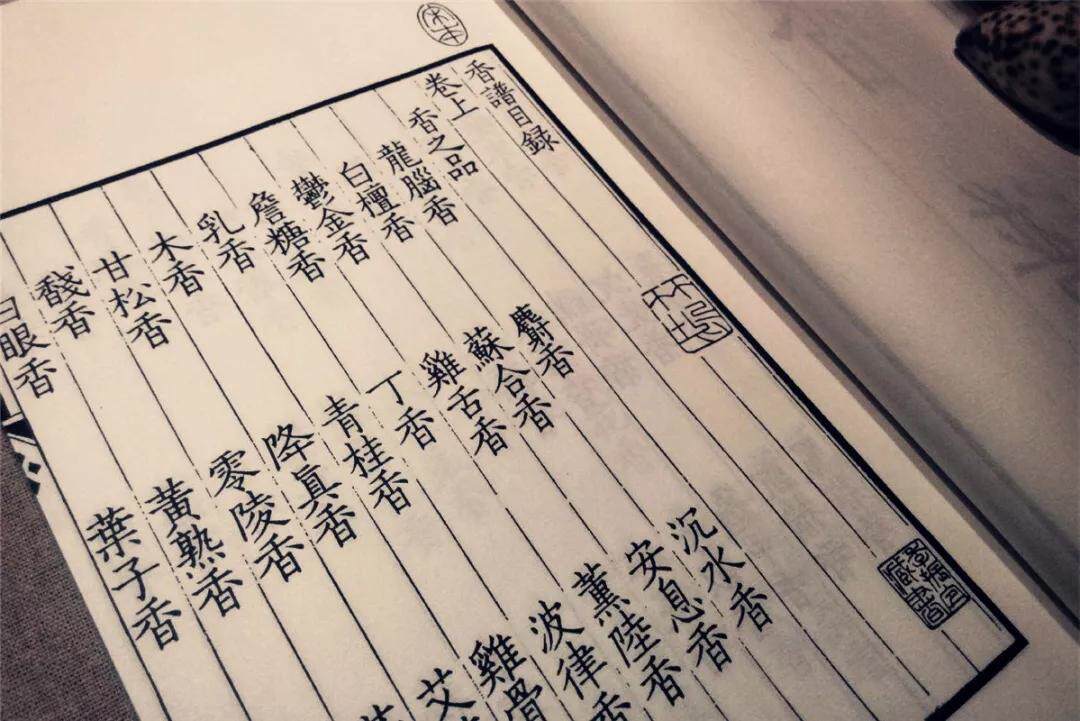 香譜目録
卷上
香之品
龍腦香 麝香 沉水香
白檀香 蘇合香 安息香
鬱金香 雞舌香 薰陸香
詹糖香 丁香 波律香
乳香 青桂香 雞骨
木香 降真香 艾
甘松香 零陵香
香 黃熟香
白眼香 葉子香